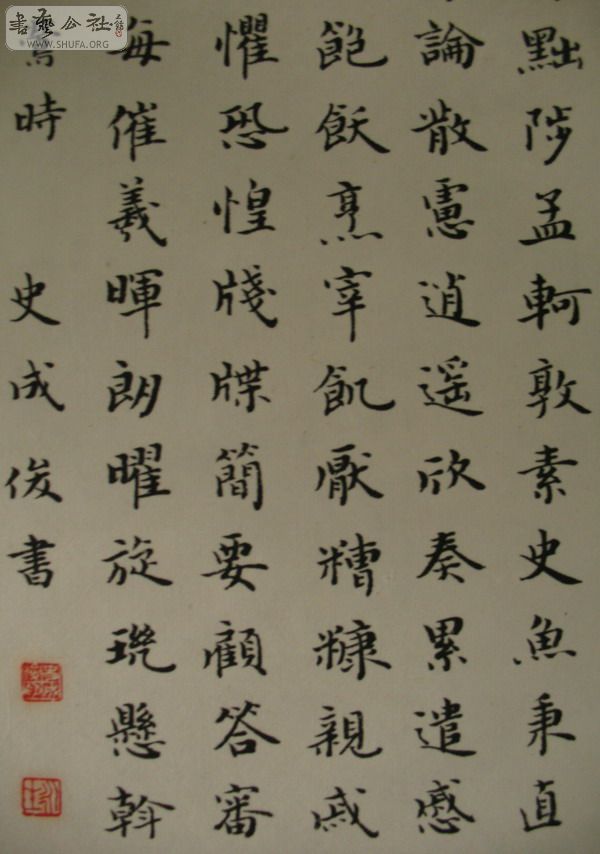 黜陟孟軻敦素史魚秉直
論散慮逍遥欣奏累遣慼
飽飫烹宰飢厭糟糠親戚
懼恐惶牋牒簡要顧答審
每催羲暉朗曜旋璣懸斡
時 史成俊書
書藝公社
WWW.SHUFA.ORG